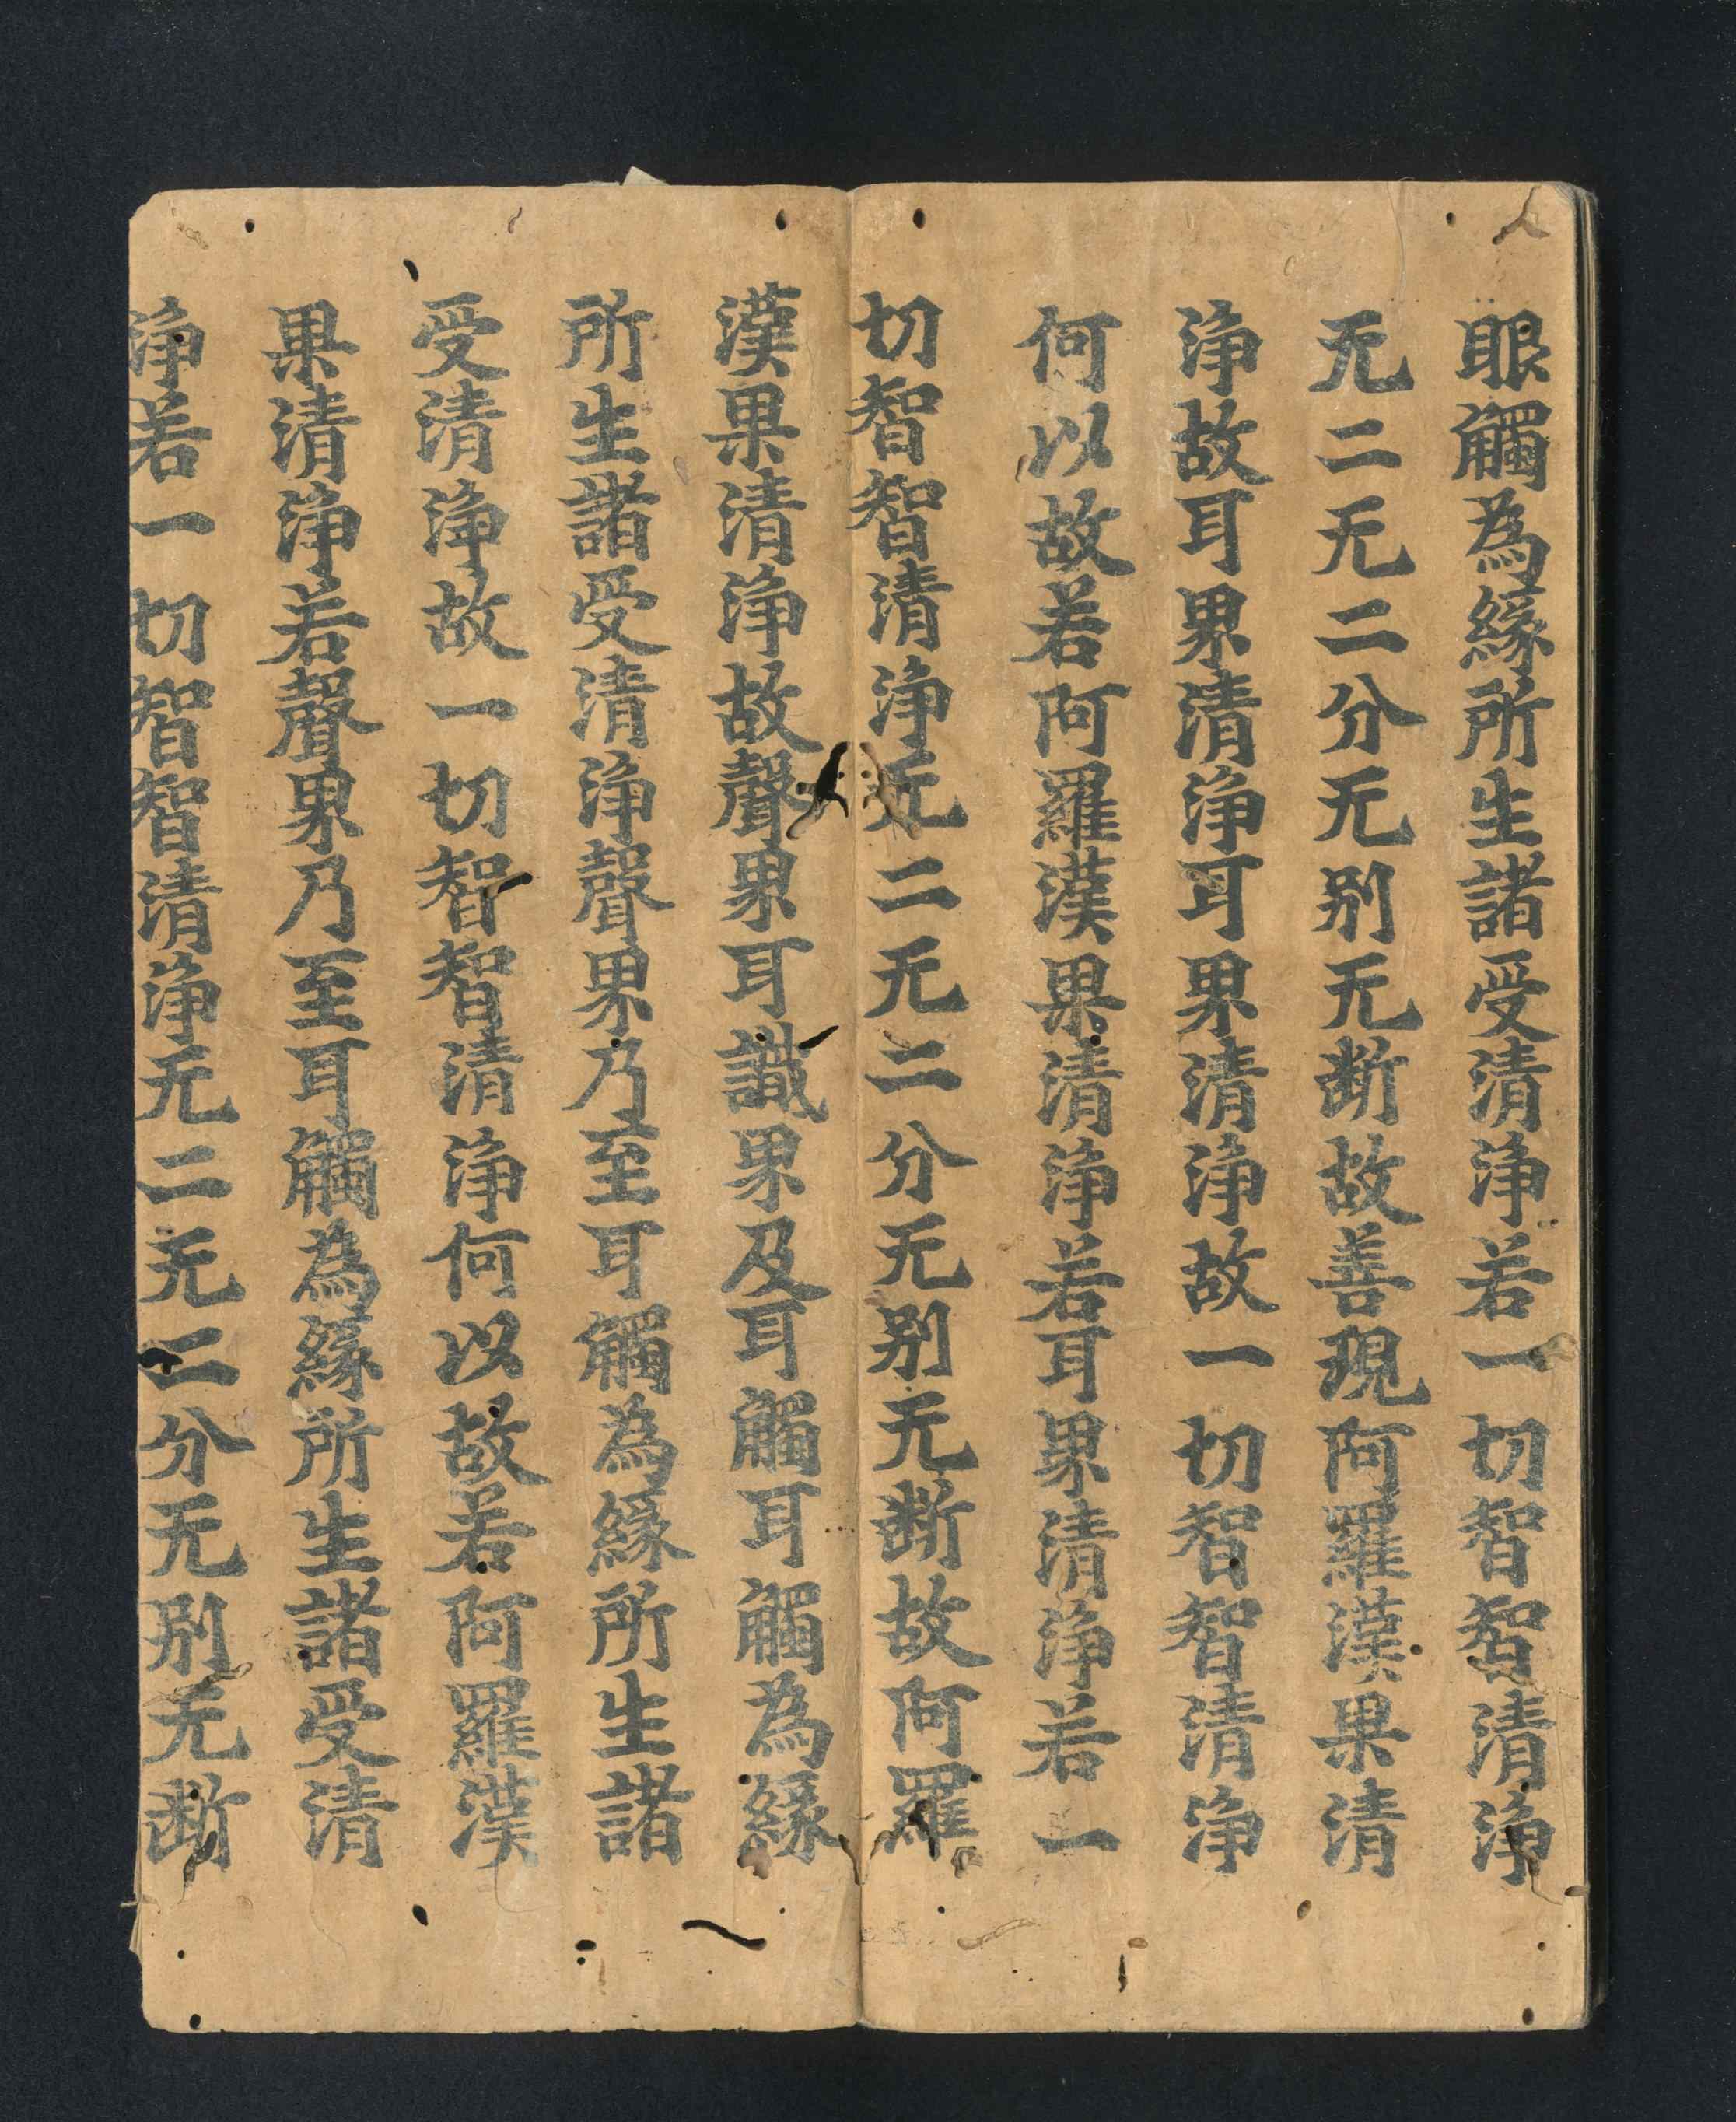 眼觸為緣所生諸受清淨若一切智智清淨
无二无二分无别无断故善現阿羅漢果清
淨故耳界清淨耳界清淨故一切智智清淨
何以故若阿羅漢果清淨若耳界清淨若一
切智智清淨无二无二分无别无断故阿羅
漢果清淨故聲界耳識界及耳觸耳觸為緣
所生諸受清淨聲界乃至耳觸為緣所生諸
受清淨故一切智智清淨何以故若阿羅漢
果清淨若聲界乃至耳觸為緣所生諸受清
淨若一切智智清淨无二无二分无别无断